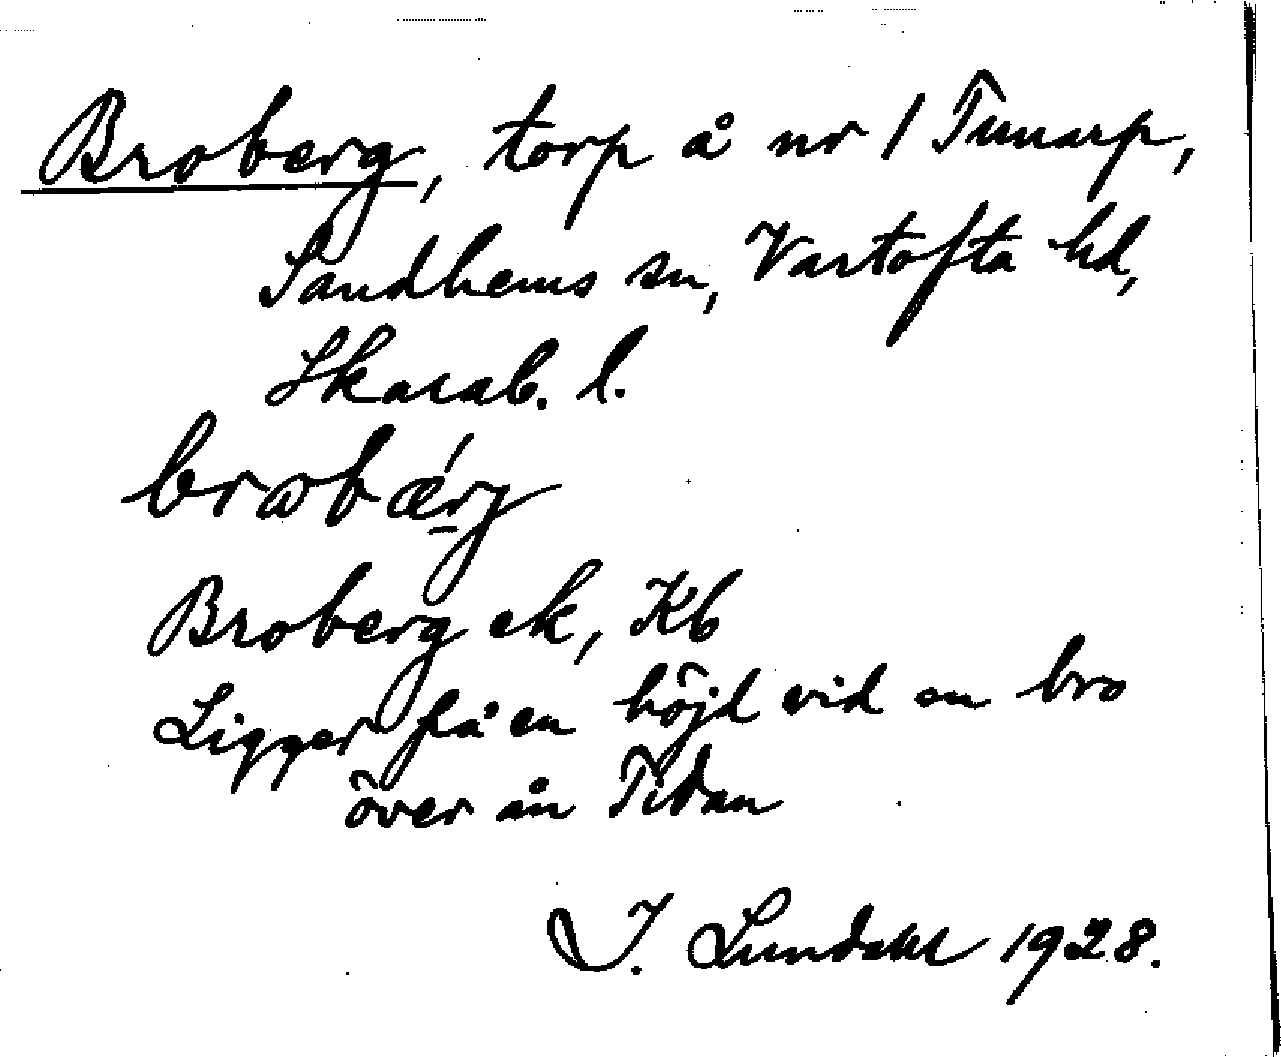 Broberg, torp å nr 1 Tunarp,
Sandhems sn, Vartofta hd,
Skarab. l.
Broberg ek, Kb
Ligger på en höjd vid en bro
över ån Tidan
I. Lundahl 1928.